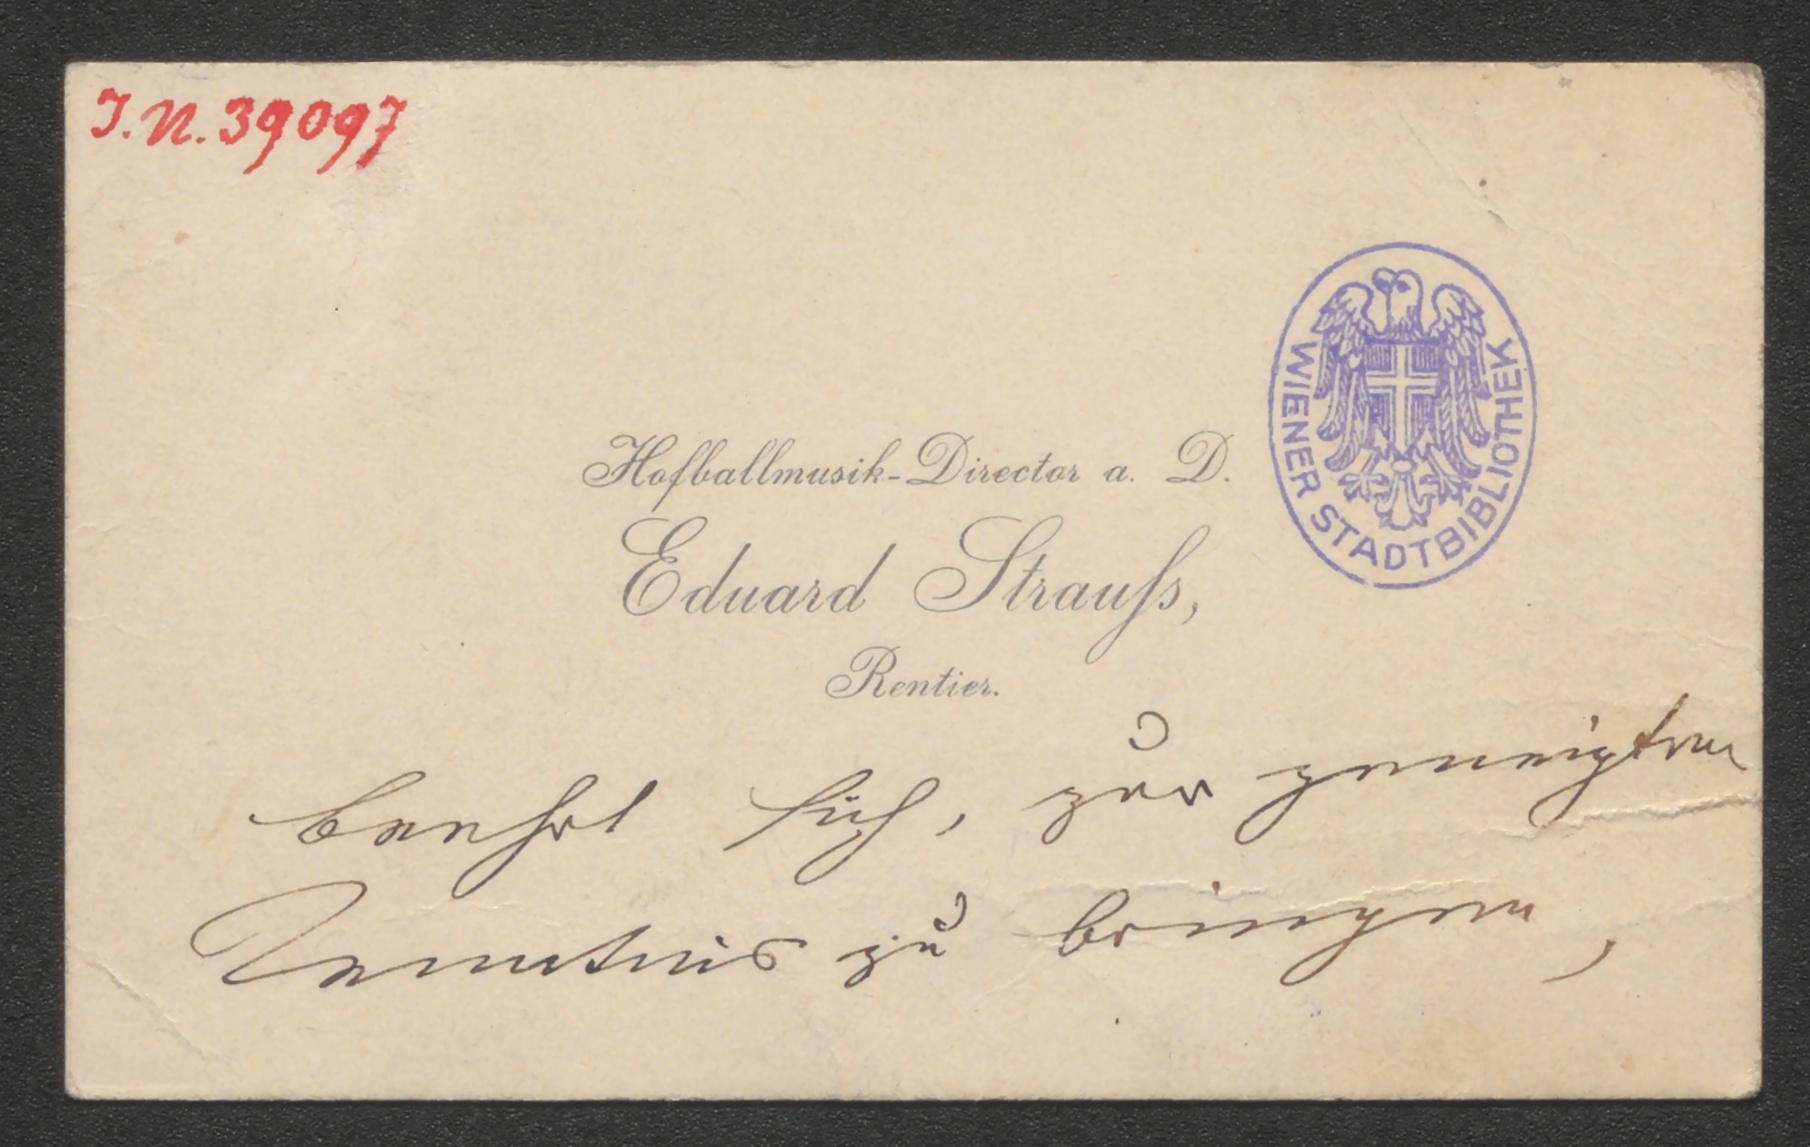 J.N. 39097
WIENER STADTBIBLIOTHEK
Hofballmusik-Director a. D.
Eduard Strauſs,
Rentier.
beehrt sich, zur geneigten
Kenntnis zu bringen,